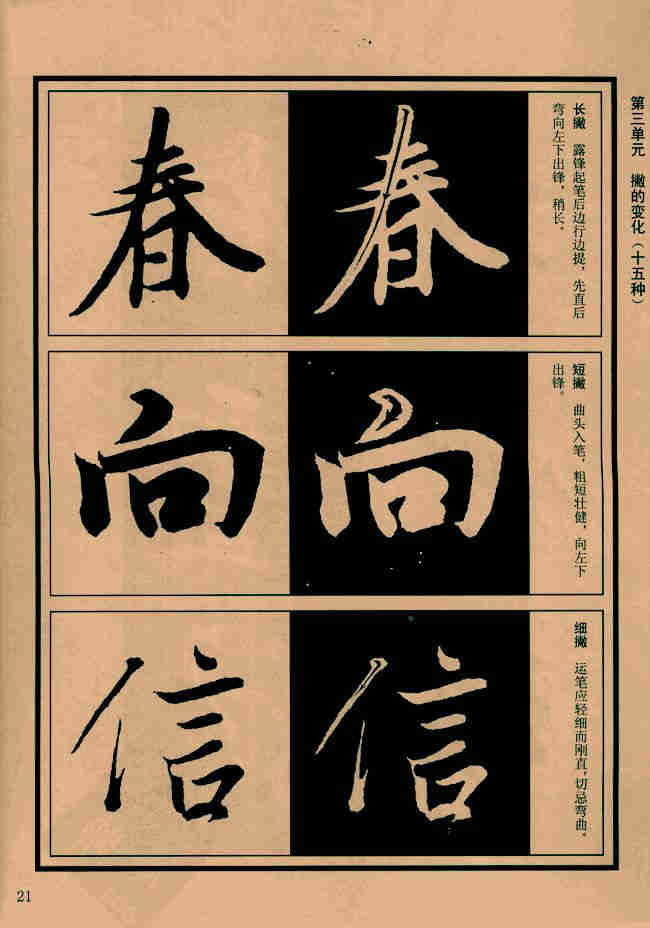 第三单元 撇的变化（十五种）
长撇 露锋起笔后边行边提，先直后
弯向左下出锋，稍长。
春
春
短撇 曲头入笔，粗短壮健，向左下
出锋。
向
向
细撇 运笔应轻细而刚直，切忌弯曲。
信
信
21